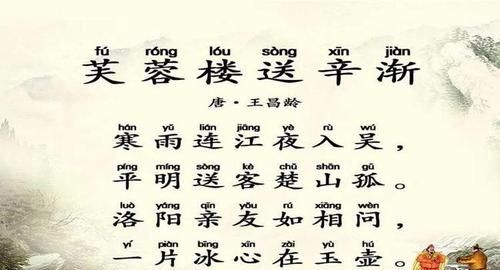 fú róng lóu sòng xīn jiàn
芙蓉楼送辛渐
唐·王昌龄
hán yǔ lián jiāng yè rù wú
寒雨连江夜入吴，
píng míng sòng kè chǔ shān gū
平明送客楚山孤。
luò yáng qīn yǒu rú xiāng wèn
洛阳亲友如相问，
yí piàn bīng xīn zài yù hú
一片冰心在玉壶。